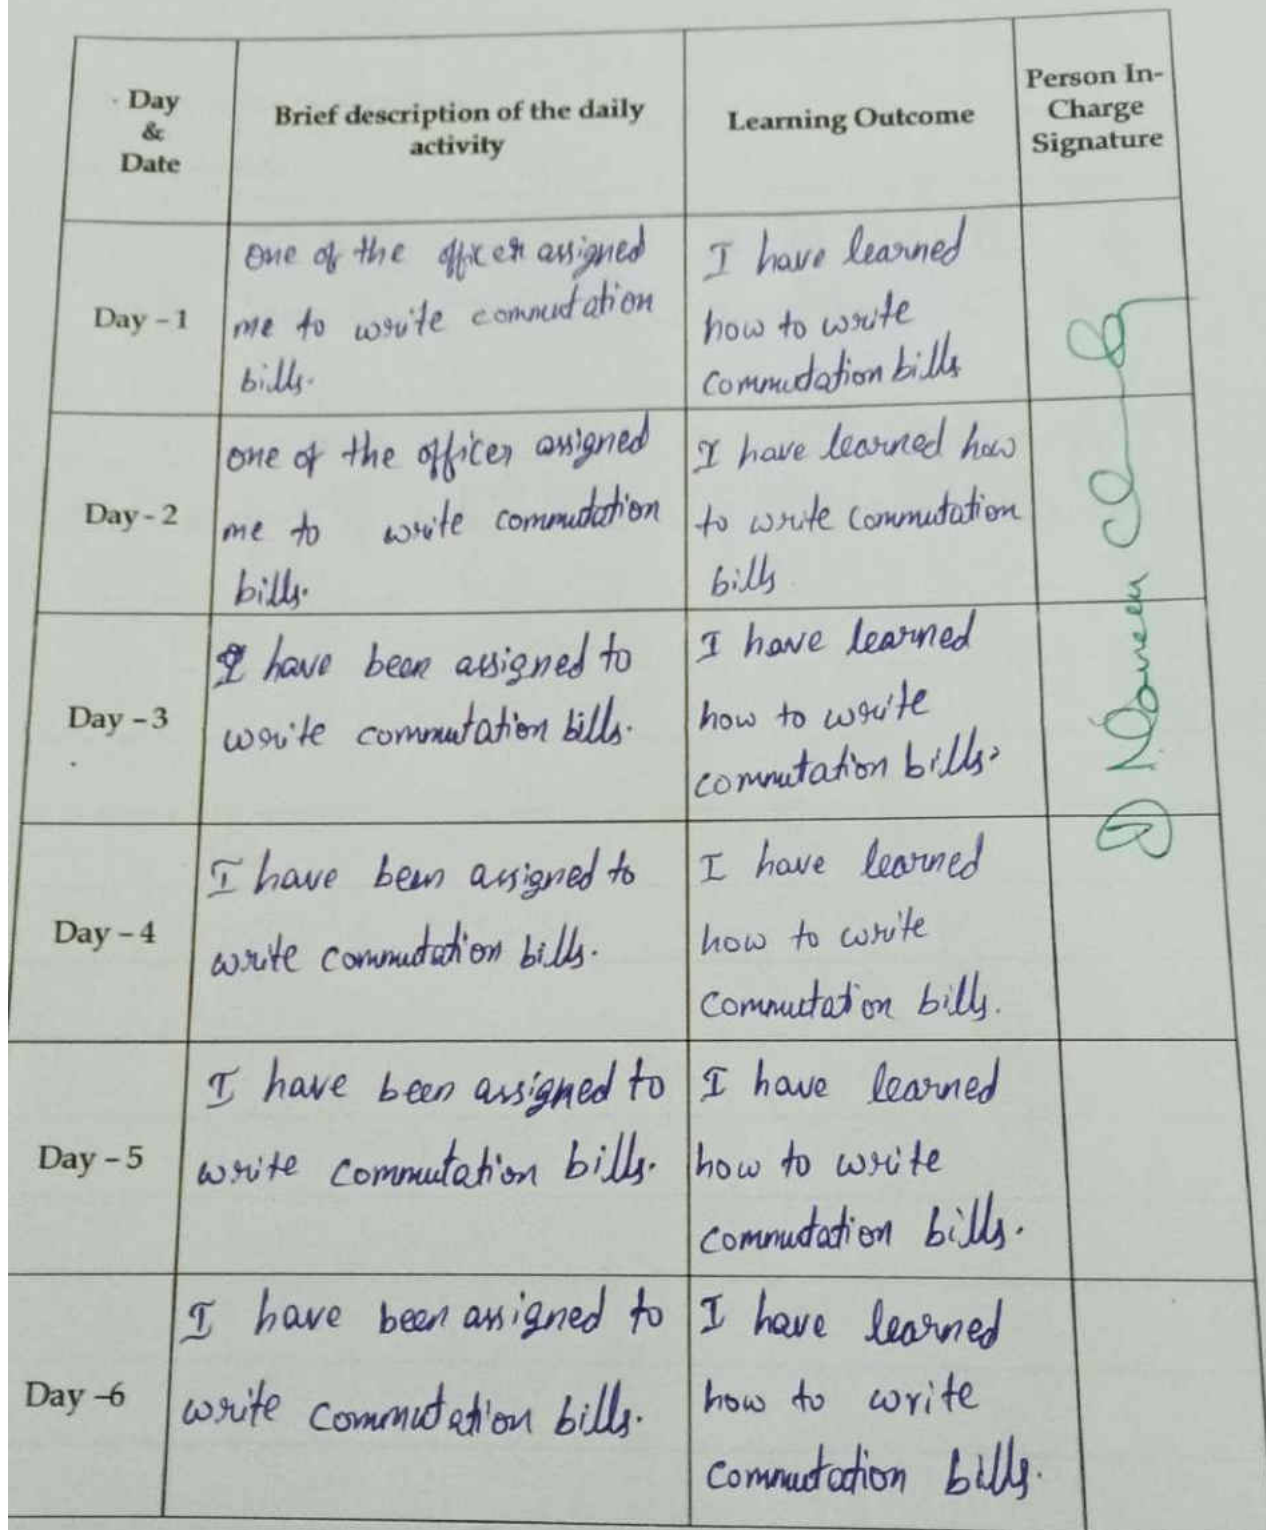 Day
&
Date
Brief description of the daily
activity
Learning Outcome
Person In-
Charge
Signature
Day - 1
One of the officer assigned
me to write commutation
bills.
I have learned
how to write
commutation bills
Day - 2
one of the officer assigned
me to write commutation
bills.
I have learned how
to write commutation
bills
Day - 3
I have been assigned to
write commutation bills.
I have learned
how to write
commutation bills.
Day - 4
I have been assigned to
write commutation bills.
I have learned
how to write
commutation bills.
Day - 5
I have been assigned to
write commutation bills.
I have learned
how to write
commutation bills.
Day -6
I have been assigned to
write commutation bills.
I have learned
how to write
commutation bills.